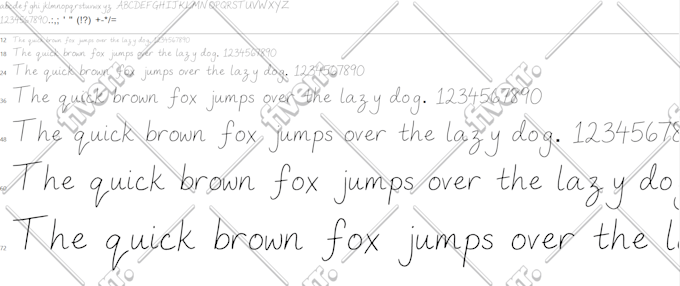 abcdefghijklmnopqrstuvwxyz ABCDEFGHIJKLMNOPQRSTUVWXYZ
1234567890.:,; ' " (!?) +-*/=
12 The quick brown fox jumps over the lazy dog. 1234567890
18 The quick brown fox jumps over the lazy dog. 1234567890
24 The quick brown fox jumps over the lazy dog. 1234567890
36 The quick brown fox jumps over the lazy dog. 1234567890
48 The quick brown fox jumps over the lazy dog. 12345678
60 The quick brown fox jumps over the lazy do
72 The quick brown fox jumps over the l
fiverr.
fiverr.
fiverr.
fiverr.
fiverr.
fiverr.